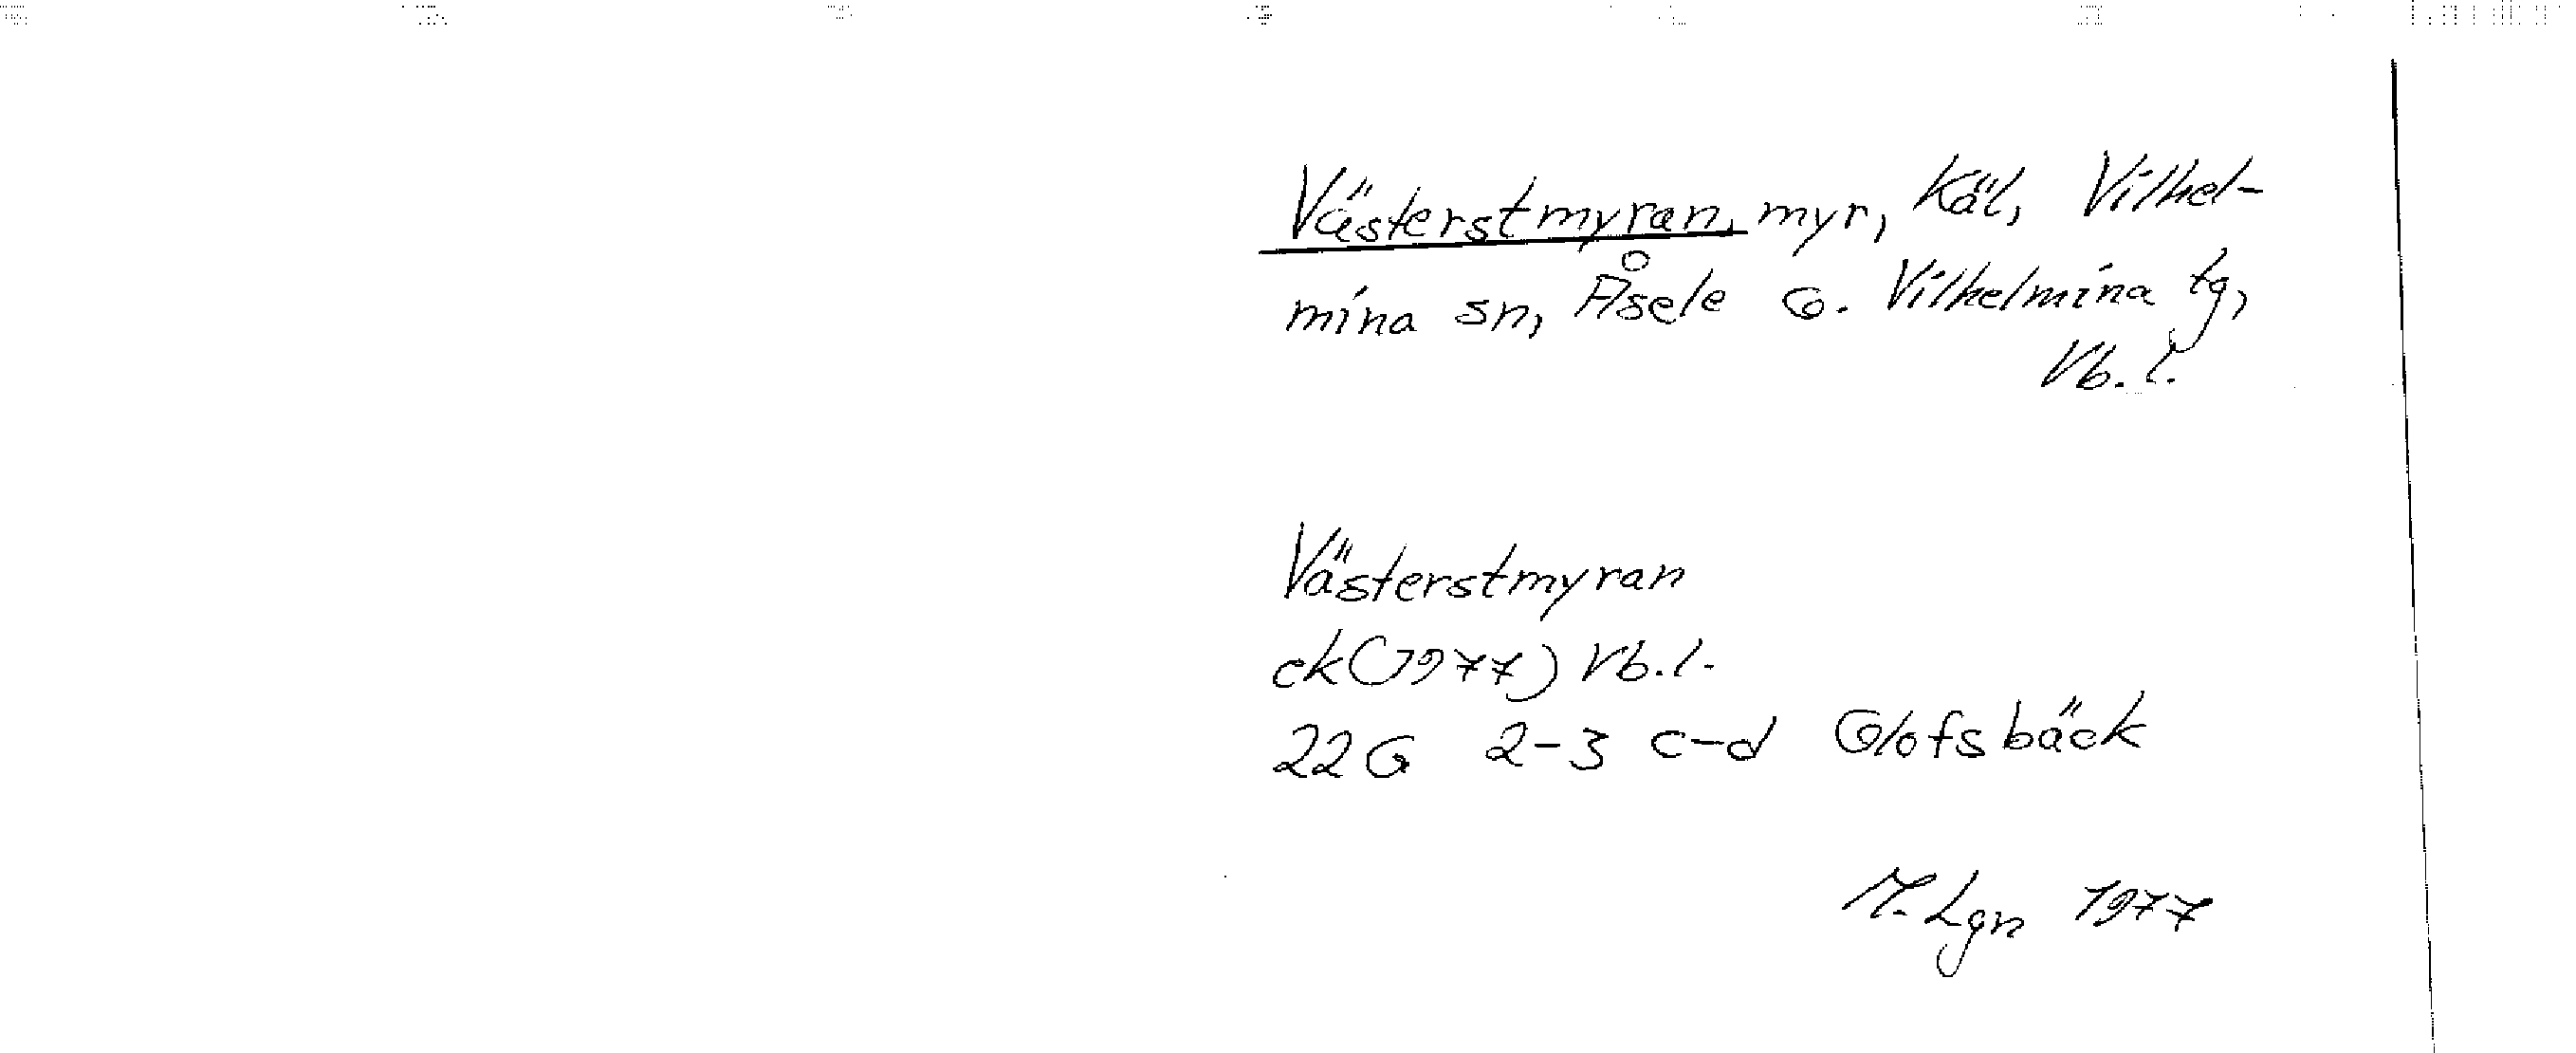 Västerstmyran, myr, Käl, Vilhel-
mina sn, Åsele o. Vilhelmina tg,
Vb.l.
Västerstmyran
ek(1977) Vb.l.
22G 2-3 c-d Olofsbäck
M. Lgn 1977